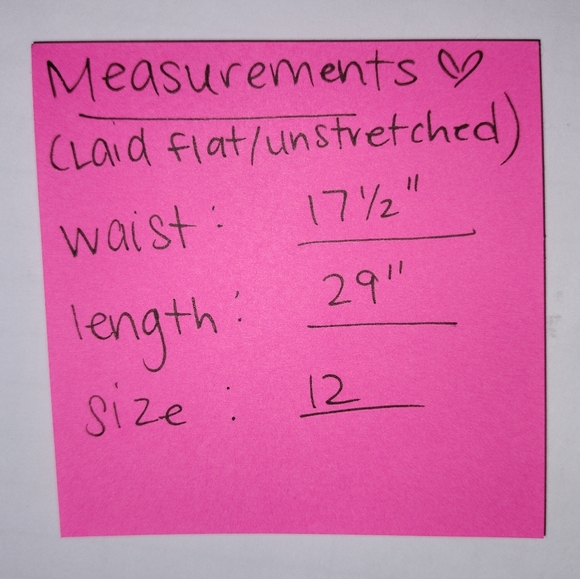 Measurements ♡
(Laid flat/unstretched)
waist: 17 1/2"
length: 29"
size: 12